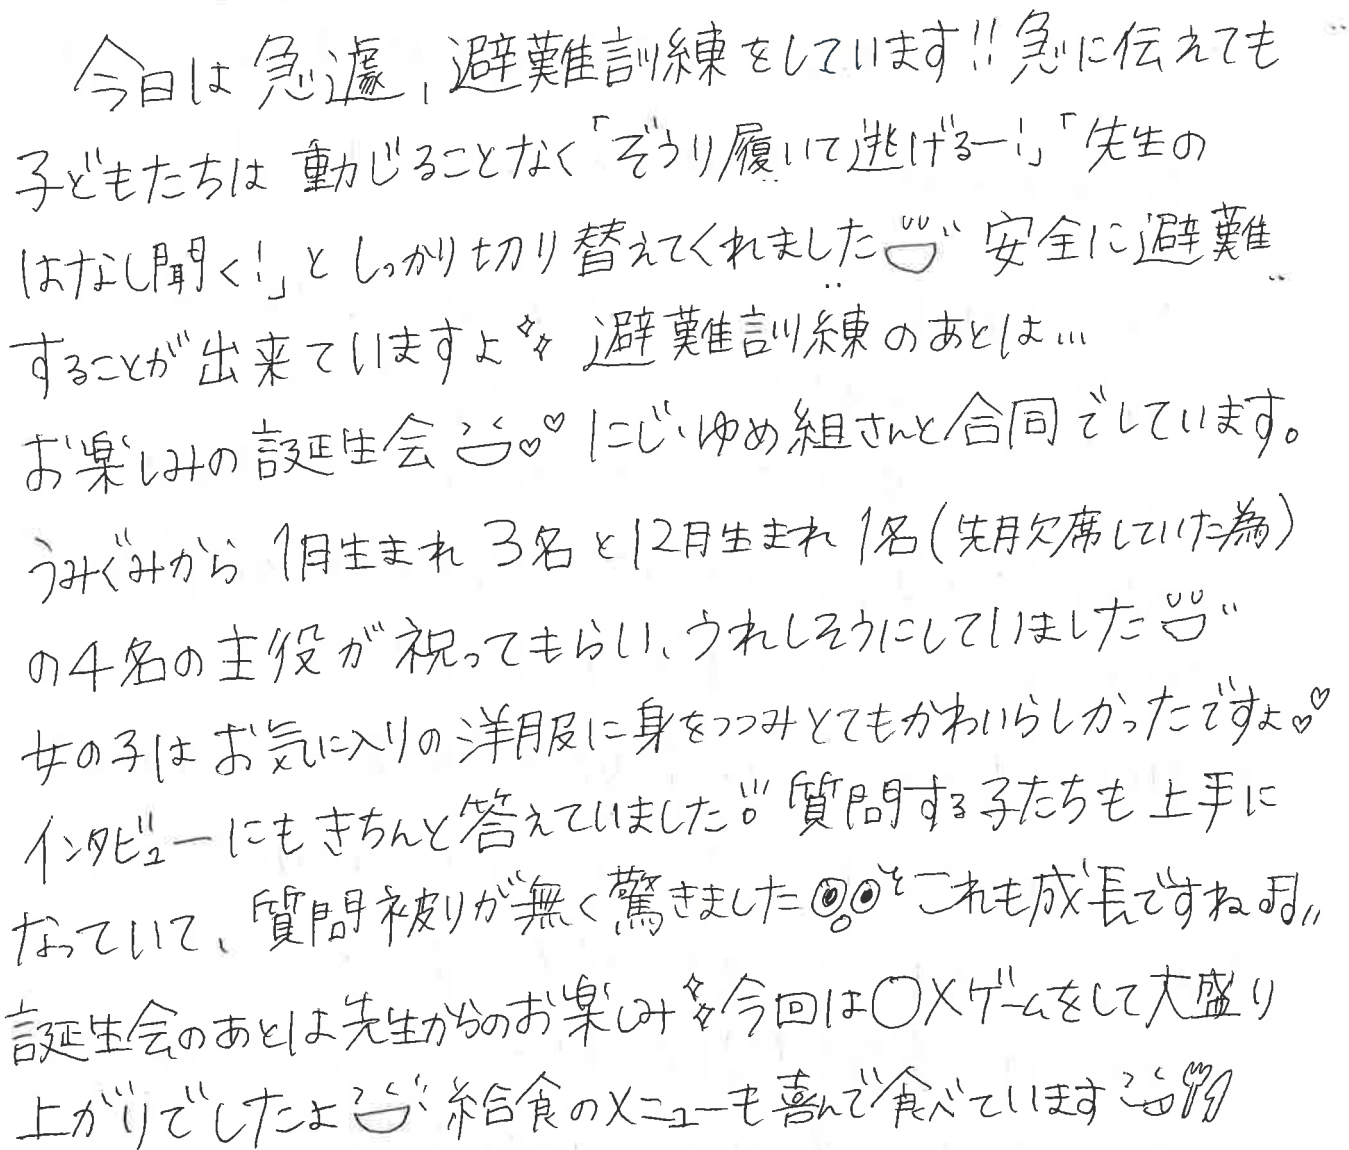 今日は急遽、避難訓練をしています!!急に伝えても
子どもたちは動じることなく「ぞうり履いて逃げるー!」「先生の
はなし聞く!」としっかり切り替えてくれました 安全に避難
することが出来ていますよ 避難訓練のあとは…
お楽しみの誕生会♡♡ にじ・ゆめ組さんと合同でしています。
うみぐみから1月生まれ3名と12月生まれ1名(先月欠席していた為)
の4名の主役が祝ってもらい、うれしそうにしていました
女の子はお気に入りの洋服に身をつつみとてもかわいらしかったですよ♡♡
インタビューにもきちんと答えていました!! 質問する子たちも上手に
なっていて、質問被りが無く驚きました これも成長ですね
誕生会のあとは先生からのお楽しみ 今回は〇×ゲームをして大盛り
上がりでしたよ 給食のメニューも喜んで食べています